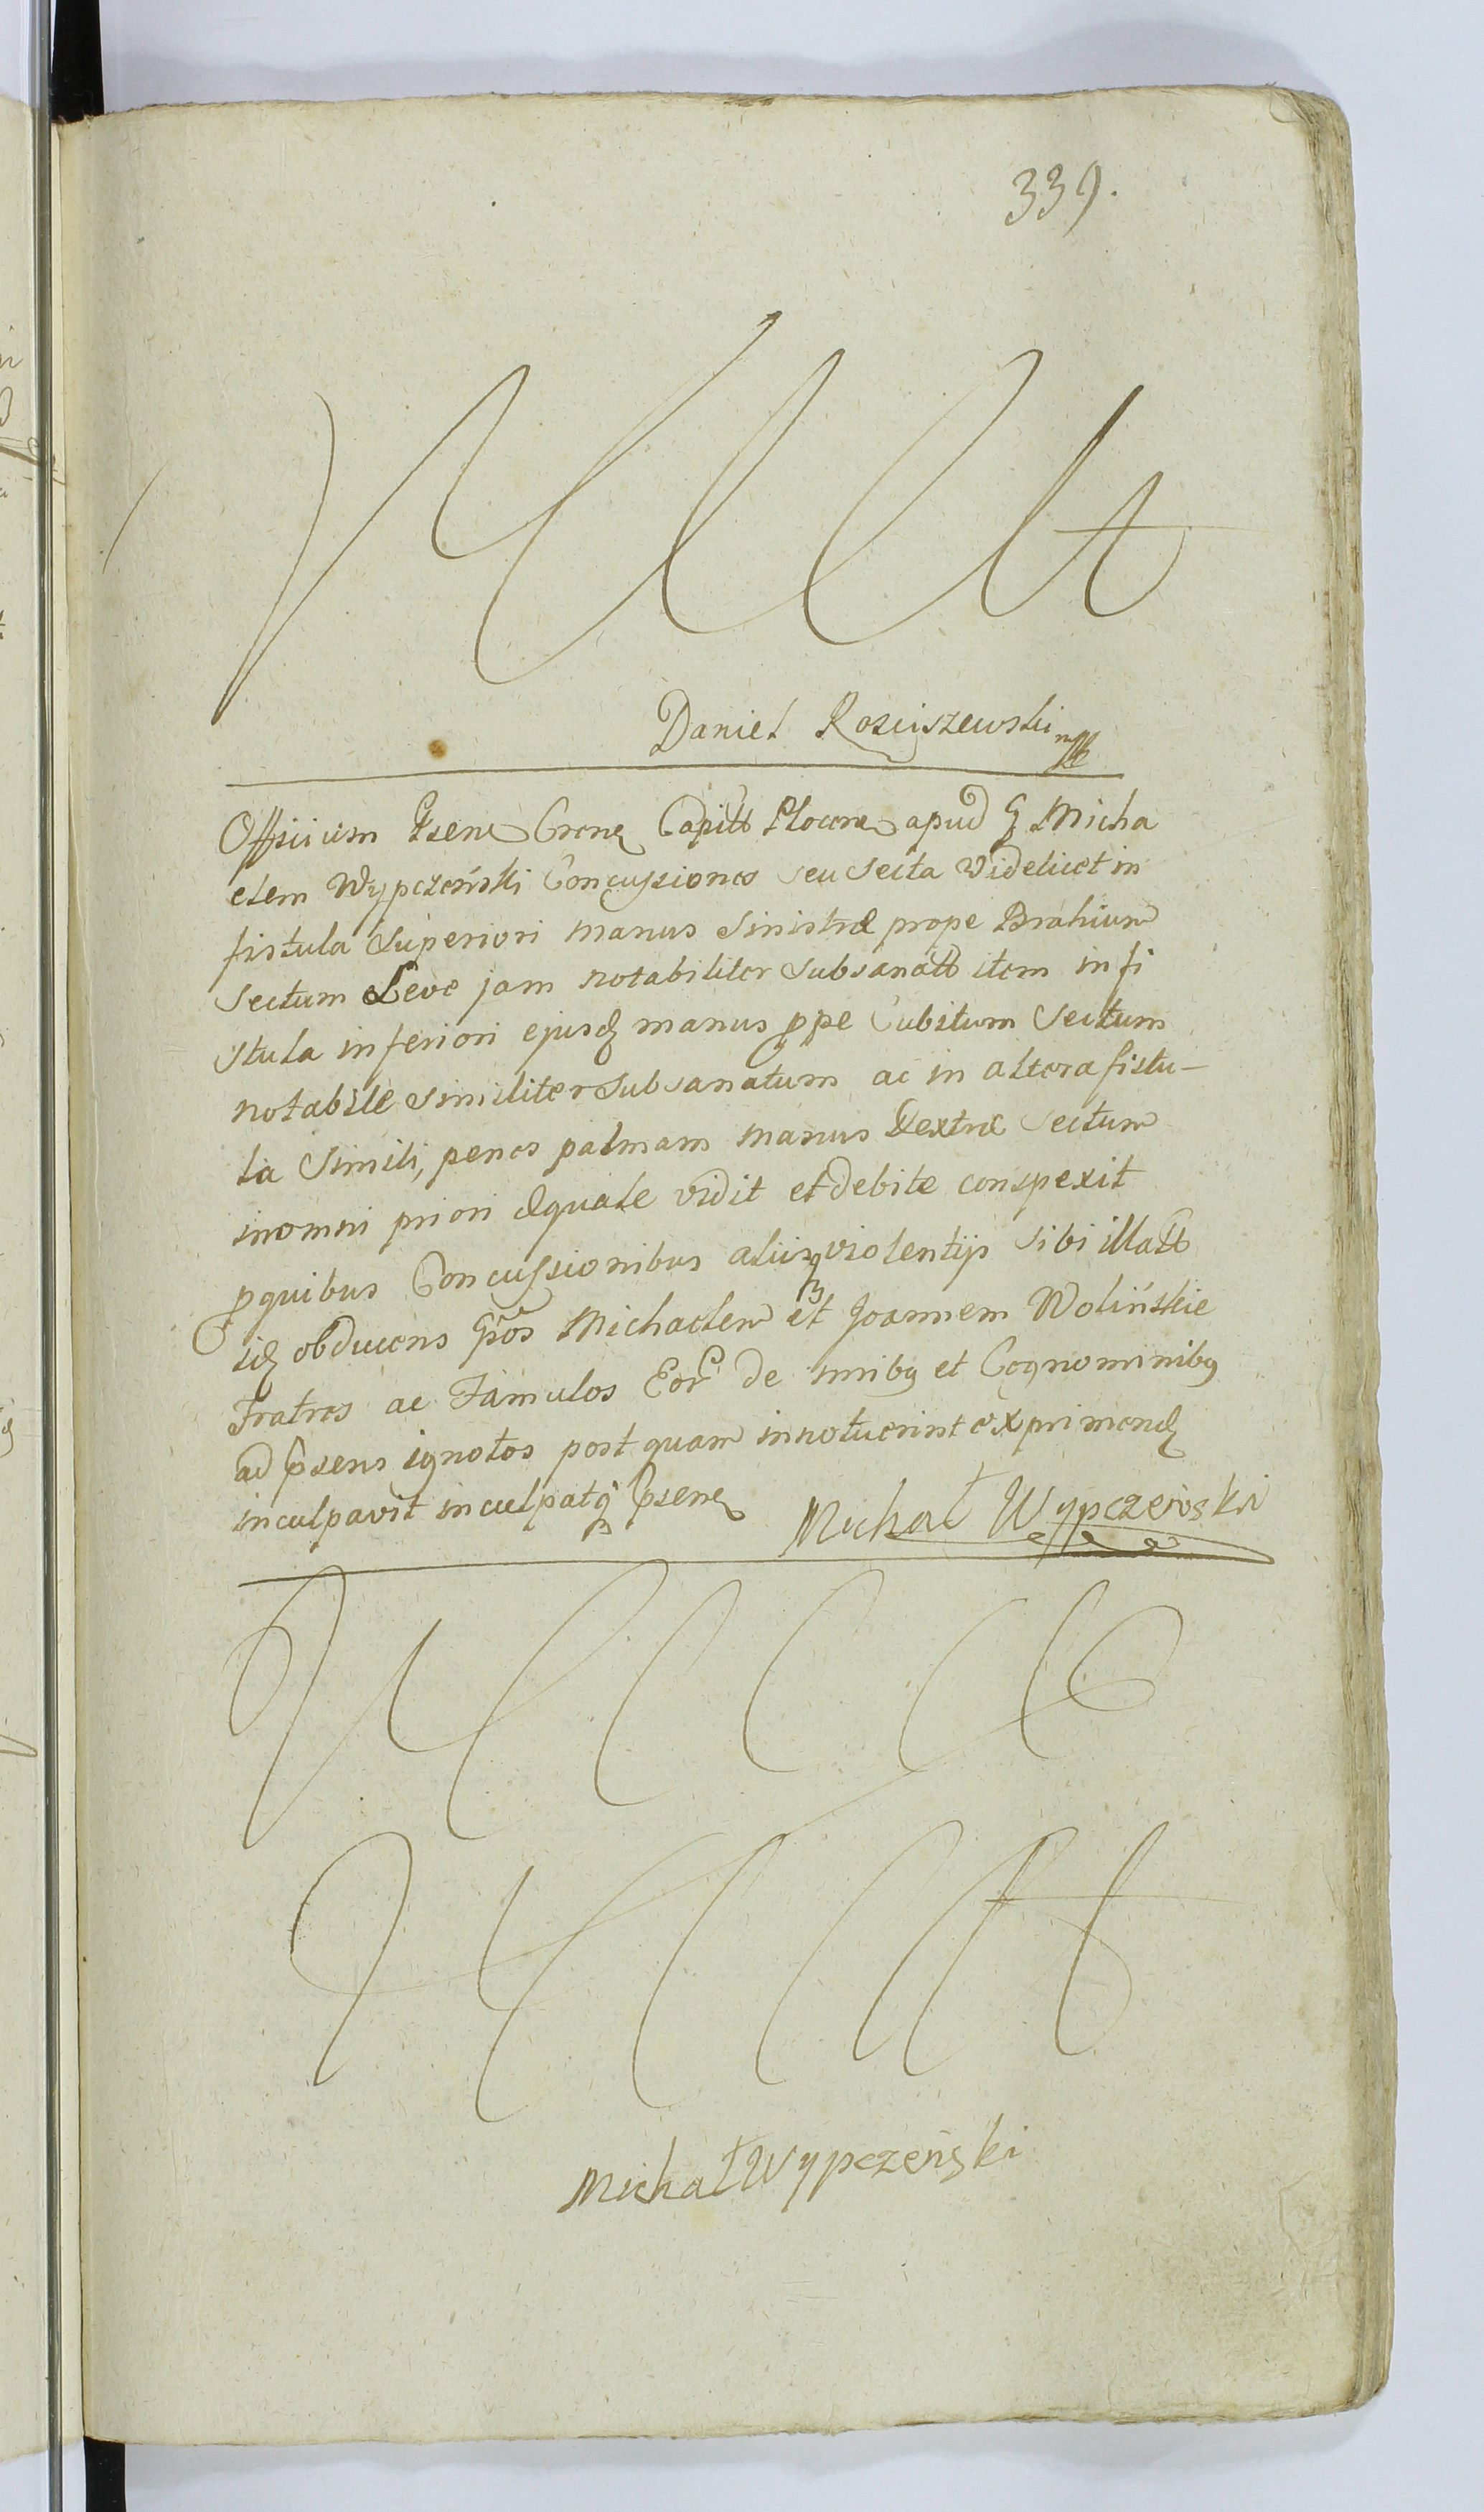 339.
Daniel Rosciszewski mp
Officium Psens Crense Capitt Plocens apud G Micha
elem Wypczeński Concussiones seu Secta Videlicet in
fistula Superiori manus Sinistræ prope Brahium
Sectum Leve jam notabiliter Subsanatt item in fi
stula inferiori ejusdq manus ppe Cubitum Sectum
notabile Similiter Subsanatum ac in altera fistu-
la Simili, penes palmam manus Dextræ Sectum
in omni priori æquale vidit et debite conspexit
p quibus Concussionibus aliisq violentijs sibi illatt
idq obducens Gnos Michaelem et Joannem Wolińskie
Fratres ac Famulos Eor de nnibq et Cognominibq
ad Psens ignotos postquam innotuerint exprimendq
inculpavit inculpatq Psens
Michał Wypczenski
Michał Wypczenski